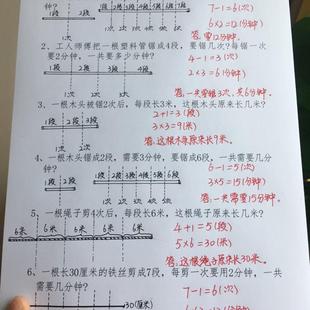 钟?
1段 2段 1段 2段 3段 4段 5段 6段 7段
1次 1次 1次 1次 1次 1次 1次
7-1=6(次)
6×2=12(分钟)
答:要12分钟.
2、工人师傅把一根塑料管锯成4段,要锯几次?每锯一次
要2分钟,一共要多少分钟?
1段 2段 3段 4段
1次 1次 1次
4-1=3(次)
2×3=6(分钟)
答:一共要锯3次,
3、一根木头被锯2次后,每段长3米,这根木头原来长几米?
1段 2段 3段
1次 1次
2+1=3(段)
3×3=9(米)
答:这根木头原来长9米.
4、一根木头锯成2段,需要3分钟,要锯成6段,一共需要几分
钟?
1段 2段
1次
6-1=5(次)
3×5=15(分钟)
答:一共需要15分钟.
5、一根绳子剪4次后,每段长6米,这根绳子原来长几米?
6米 6米 6米 6米 6米
1次 1次 1次 1次
4+1=5(段)
5×6=30(米)
答:这根绳子原来长30米.
6、一根长30厘米的铁丝剪成7段,每剪一次要用2分钟,一共
需要几分钟?
30(厘米)
7-1=6(次)